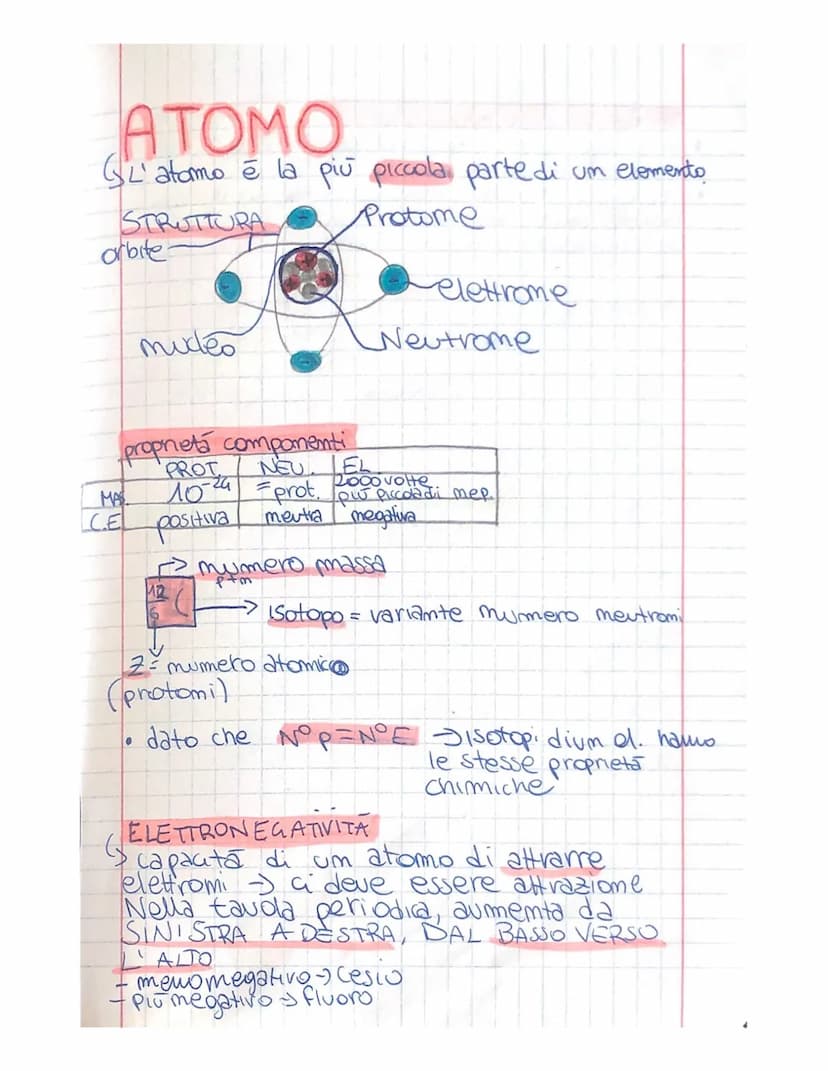 ATOMO
↳ L'atomo è la più piccola parte di un elemento
STRUTTURA
Protone
orbite
elettrone
nucleo
Neutrone
proprietà componenti
PROT. NEU. EL
MAS. 10-24 = prot. 2000 volte più piccola di nep.
C.E positiva neutra negativa
→ numero massa
p+n
12
6 C → isotopo = variante numero neutroni
Z = numero atomico
(protoni)
• dato che N° p = N° E → isotopi di un el. hanno
le stesse proprietà
chimiche
ELETTRONEGATIVITÀ
↳ capacità di un atomo di attrarre
elettroni → ci deve essere attrazione
Nella tavola periodica, aumenta da
SINISTRA A DESTRA, DAL BASSO VERSO
L'ALTO
- meno negativo → Cesio
- più negativo → fluoro